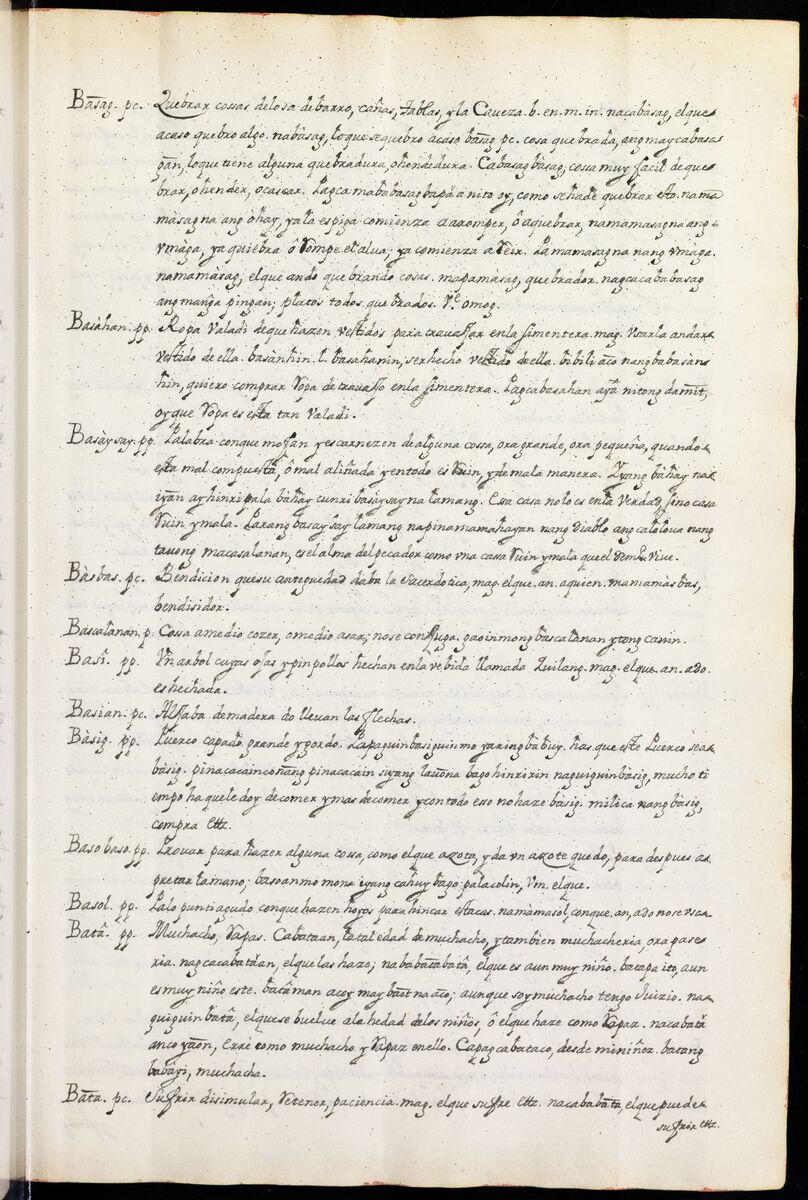 Basag. pc. Quebrar cossas de losa de barro, cañas, tablas, y la Caveza. b. en. m. in. nacabàsag, el que
acaso quebro algo. nabàsag, lo que se quebro acaso basag pc. cosa quebrada, ang may cabasa
gan, lo que tiene alguna quebradura, o hendedura. Cabasagbàsag, cossa muy facil de que
brar, o hender, o cascar. Pagca mababasag bapâ a nito oy, como se hade quebrar esto. nama
màsag na ang ohay, ya la espiga comienza a romper, ô a quebrar, namamasag na ang
vmàga, ya quiebra ô Rompe el alua; ya comienza a Reir. Pamamasag na nang vmàga.
namamàsag, el que ando quebrando cosas. mapamàsag, quebrador. nagcacababasag
ang manga pingan; platos todos quebrados. Ve. omog.
Basàhan. pp. Ropa valadi de que hazen vestidos para travajar en la simentera. mag. Vsarla andar
vestido de ella. basànhin. l. basahanin, ser hecho vestido de ella. bibili aco nang babasàn
hin, quiero comprar Ropa de travajo en la simentera. Pagcabasahan ayâ nitong damit,
oy que Ropa es esta tan valadi.
Basàysay. pp. Palabra con que mofan y escarnezen de alguna cossa, ora grande, ora pequeña, quando
esta mal compuesta, ô mal aliñada y en todo es Ruin, y de mala manera. Yyang bàhay na
iyan ay hinri pala bàhay cun ri basàysay na lamang. Essa casa no lo es en la verdad sino casa
Ruin y mala. Parang basaysay lamang na pinamamahayan nang diablo ang caloloua nang
tauong macasalanan, es el alma del pecador como vna casa Ruin y mala que el Demo. vive.
Bàsbas. pc. Bendicion que su antiguedad daba la sacerdotica, mag. el que. an. a quien. mamamàsbas,
bendisidor.
Bascalanan. p. Cossa a medio cozer, o medio asar; no se conjuga. gaoin mong bascalanan ytong canin.
Basî. pp. Vn arbol cuyas ojas y pinpollos hechan en la vebida llamada Quilang. mag. el que. an. ado.
es hechada.
Basian. pc. Aljaba de madera do llevan las flechas.
Bàsig. pp. Puerco capado grande y gordo. Papaguinbasiguin mo yaring babuy. has que este Puerco sea
bàsig. pinacacain co nang pinacacain siyang lauona bago hinri rin naguiguinbàsig, mucho ti
empo ha que le doy de comer y mas de comer y con todo eso no haze bàsig. milica nang bàsig,
compra &c.
Baso baso. pp. Provar para hazer alguna cossa, como el que azota, y da vn azote quedo, para despues a
pretar la mano; basoan mo mona iyang cahuy bago palacolin, Vm. el que.
Basol. pp. Palo puntiagudo con que hazen hoyos para hincar estacas. namàmasol, con que. an, ado no se vsa.
Batâ. pp. Muchacho, Rapas. Cabataan, la tal edad de muchacho, y tambien muchacheria, ora pase
ria. nagcacabatâan, el que las haze; nababatabatâ, el que es aun muy niño. bata pa ito, aun
es muy niño este. batâ man aco y may baet na aco; aunque soy muchacho tengo Juizio. na
guiguinbatâ, el que se buelve a la hedad de los niños, ô el que haze como Rapaz. nacabatâ
anco yaon, Erre como muchacho y Rapaz en ello. Capagcabataco, desde mi niñez. batang
babàyi, muchacha.
Bàta. pc. Sufrir disimular, Retener, paciencia. mag. el que sufre &c. nacababata, el que puede
sufrir &c.